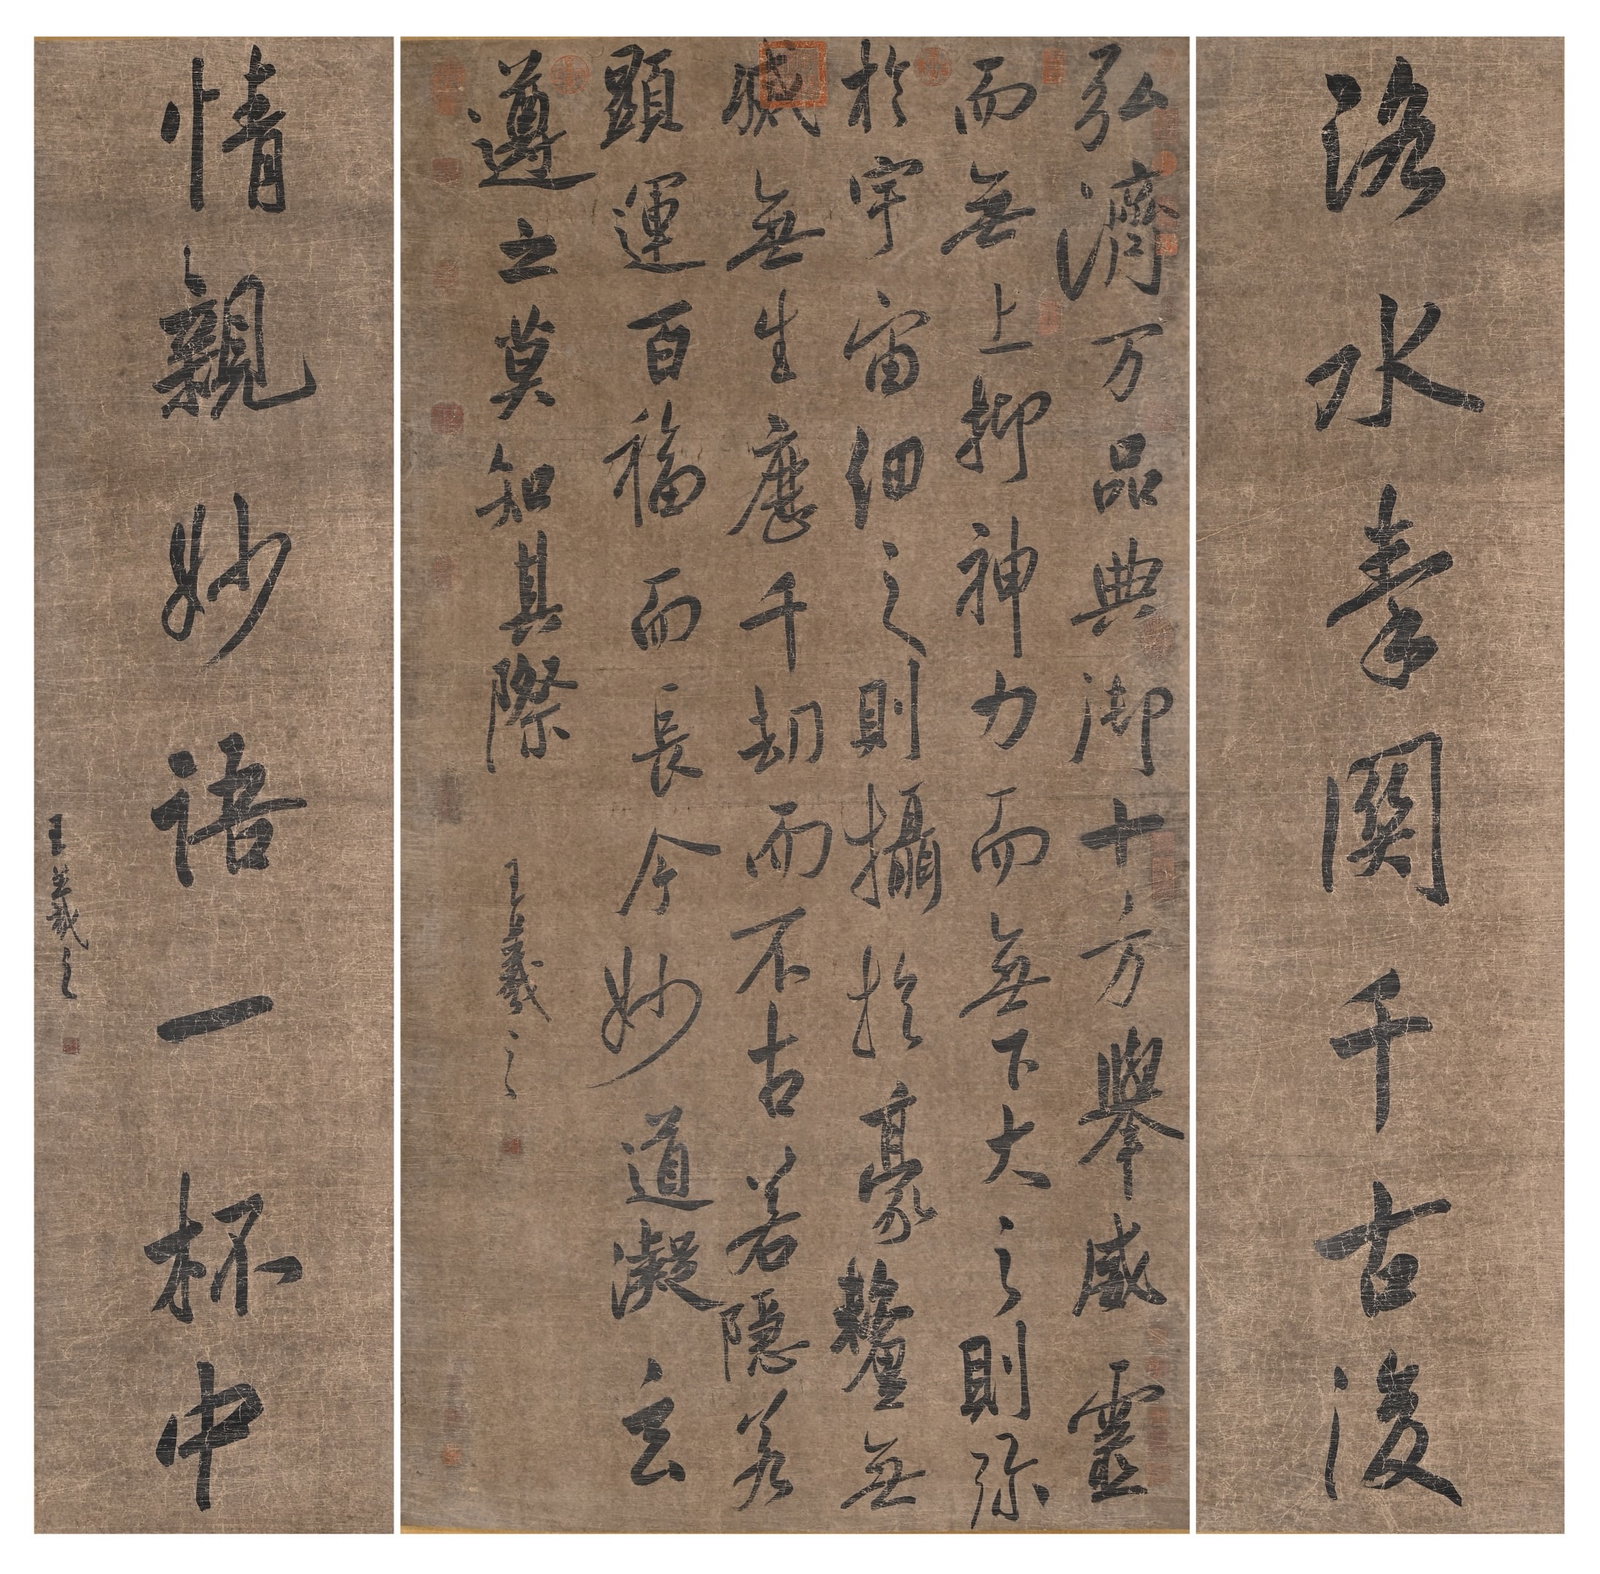 洛水秦關千古後
弘濟万品典御十方舉威靈
而無上抑神力而無下大之則弥
於宇宙細之則攝於豪釐無
滅無生歷千劫而不古若隱若
顯運百福而長今妙道凝玄
遵之莫知其際
王羲之
情親妙語一杯中
王羲之